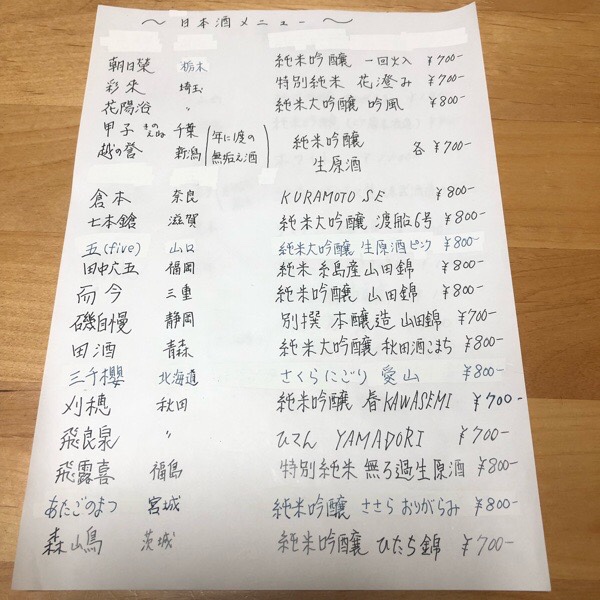 ～ 日本酒メニュー ～
朝日榮 栃木 純米吟醸 一回火入 ¥700-
彩來 埼玉 特別純米 花澄み ¥700-
花陽浴 〃 純米大吟醸 吟風 ¥800-
甲子 きのえね 千葉 (年に1度の 純米吟醸
越の誉 新潟 無垢え酒) 生原酒 各 ¥700-
倉本 奈良 KURAMOTO SE ¥800-
七本鎗 滋賀 純米大吟醸 渡船6号 ¥800-
五(five) 山口 純米大吟醸 生原酒ピンク ¥800-
田中六五 福岡 純米 糸島産山田錦 ¥800-
而今 三重 純米吟醸 山田錦 ¥800-
磯自慢 静岡 別撰 本醸造 山田錦 ¥700-
田酒 青森 純米大吟醸 秋田酒こまち ¥800-
三千櫻 北海道 さくらにごり 愛山 ¥800-
刈穂 秋田 純米吟醸 春KAWASEMI ¥700-
飛良泉 〃 ひてん YAMADORI ¥700-
飛露喜 福島 特別純米 無ろ過生原酒 ¥800-
あたごのまつ 宮城 純米吟醸 ささら おりがらみ ¥800-
森嶋 茨城 純米吟醸 ひたち錦 ¥700-